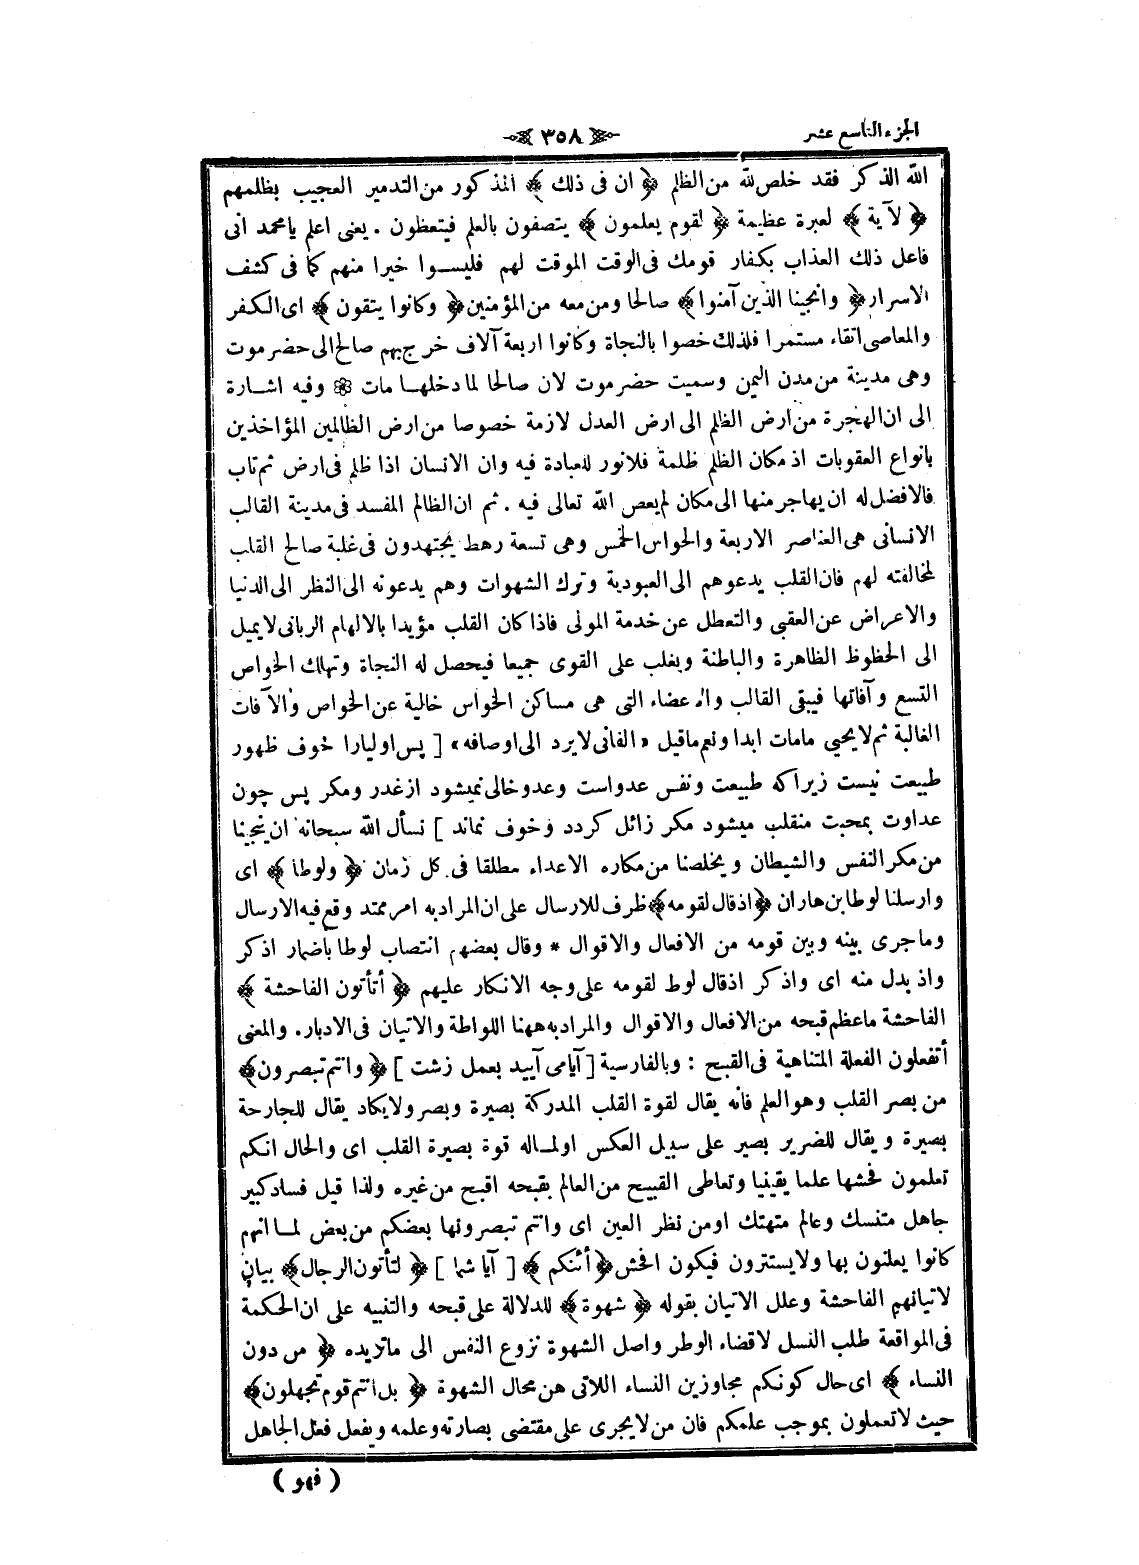 الجزء التاسع عشر
٣٥٨
الله الذكر فقد خلص لله من الظلم ﴿ ان فى ذلك ﴾ المذكور من التدمير العجيب بظلمهم
﴿ لآية ﴾ لعبرة عظيمة ﴿ لقوم يعلمون ﴾ يتصفون بالعلم فيتعظون . يعنى اعلم يا محمد انى
فاعل ذلك العذاب بكفار قومك فى الوقت الموقت لهم فليسوا خيرا منهم كما فى كشف
الاسرار ﴿ وانجينا الذين آمنوا ﴾ صالحا ومن معه من المؤمنين ﴿ وكانوا يتقون ﴾ اى الكفر
والمعاصى اتقاء مستمرا فلذلك خصوا بالنجاة وكانوا اربعة آلاف خرج بهم صالح الى حضرموت
وهى مدينة من مدن اليمن وسميت حضرموت لان صالحا لما دخلها مات ❁ وفيه اشارة
الى ان الهجرة من ارض الظلم الى ارض العدل لازمة خصوصا من ارض الظالمين المؤاخذين
بانواع العقوبات اذ مكان الظلم ظلمة فلا نور للعبادة فيه وان الانسان اذا ظلم فى ارض ثم تاب
فالافضل له ان يهاجر منها الى مكان لم يعص الله تعالى فيه . ثم ان الظالم المفسد فى مدينة القالب
الانسانى هى العناصر الاربعة والحواس الخمس وهى تسعة رهط يجتهدون فى غلبة صالح القلب
لمخالفته لهم فان القلب يدعوهم الى العبودية وترك الشهوات وهم يدعونه الى النظر الى الدنيا
والاعراض عن العقبى والتعطل عن خدمة المولى فاذا كان القلب مؤيدا بالالهام الربانى لا يميل
الى الحظوظ الظاهرة والباطنة ويغلب على القوى جميعا فيحصل له النجاة وتهلك الخواص
التسع وآفاتها فيبقى القالب والاعضاء التى هى مساكن الحواس خالية عن الخواص والآفات
الغالبة ثم لا يحيى مامات ابدا ونعم ماقيل «الفانى لا يرد الى اوصافه» [ پس اوليارا خوف ظهور
طبيعت نيست زيراكه طبيعت ونفس عدواست وعدو خالى نميشود از غدر ومكر پس چون
عداوت بمحبت منقلب ميشود مكر زائل كردد وخوف نماند ] نسأل الله سبحانه ان ينجينا
من مكر النفس والشيطان ويخلصنا من مكاره الاعداء مطلقا فى كل زمان ﴿ ولوطا ﴾ اى
وارسلنا لوطا بن هاران ﴿ اذ قال لقومه ﴾ ظرف للارسال على ان المراد به امر ممتد وقع فيه الارسال
وما جرى بينه وبين قومه من الافعال والاقوال * وقال بعضهم انتصاب لوطا باضمار اذكر
واذ بدل منه اى واذكر اذ قال لوط لقومه على وجه الانكار عليهم ﴿ أتأتون الفاحشة ﴾
الفاحشة ما عظم قبحه من الافعال والاقوال والمراد به ههنا اللواطة والاتيان فى الادبار. والمعنى
أتفعلون الفعلة المتناهية فى القبح : وبالفارسية [ آيامى آييد بعمل زشت ] ﴿ وانتم تبصرون ﴾
من بصر القلب وهو العلم فانه يقال لقوة القلب المدركة بصيرة وبصر ولا يكاد يقال للجارحة
بصيرة ويقال للضرير بصير على سبيل العكس او لماله قوة بصيرة القلب اى والحال انكم
تعلمون فحشها علما يقينيا وتعاطى القبيح من العالم بقبحه اقبح من غيره ولذا قيل فساد كبير
جاهل متنسك وعالم متهتك او من نظر العين اى وانتم تبصرونها بعضكم من بعض لما انهم
كانوا يعلنون بها ولا يستترون فيكون افحش ﴿ أئنكم ﴾ [ آيا شما ] ﴿ لتأتون الرجال ﴾ بيان
لاتيانهم الفاحشة وعلل الاتيان بقوله ﴿ شهوة ﴾ للدلالة على قبحه والتنبيه على ان الحكمة
فى المواقعة طلب النسل لاقضاء الوطر واصل الشهوة نزوع النفس الى ماتريده ﴿ من دون
النساء ﴾ اى حال كونكم مجاوزين النساء اللاتى هن محال الشهوة ﴿ بل انتم قوم تجهلون ﴾
حيث لا تعملون بموجب علمكم فان من لا يجرى على مقتضى بصارته وعلمه ويفعل فعل الجاهل
( فهو )